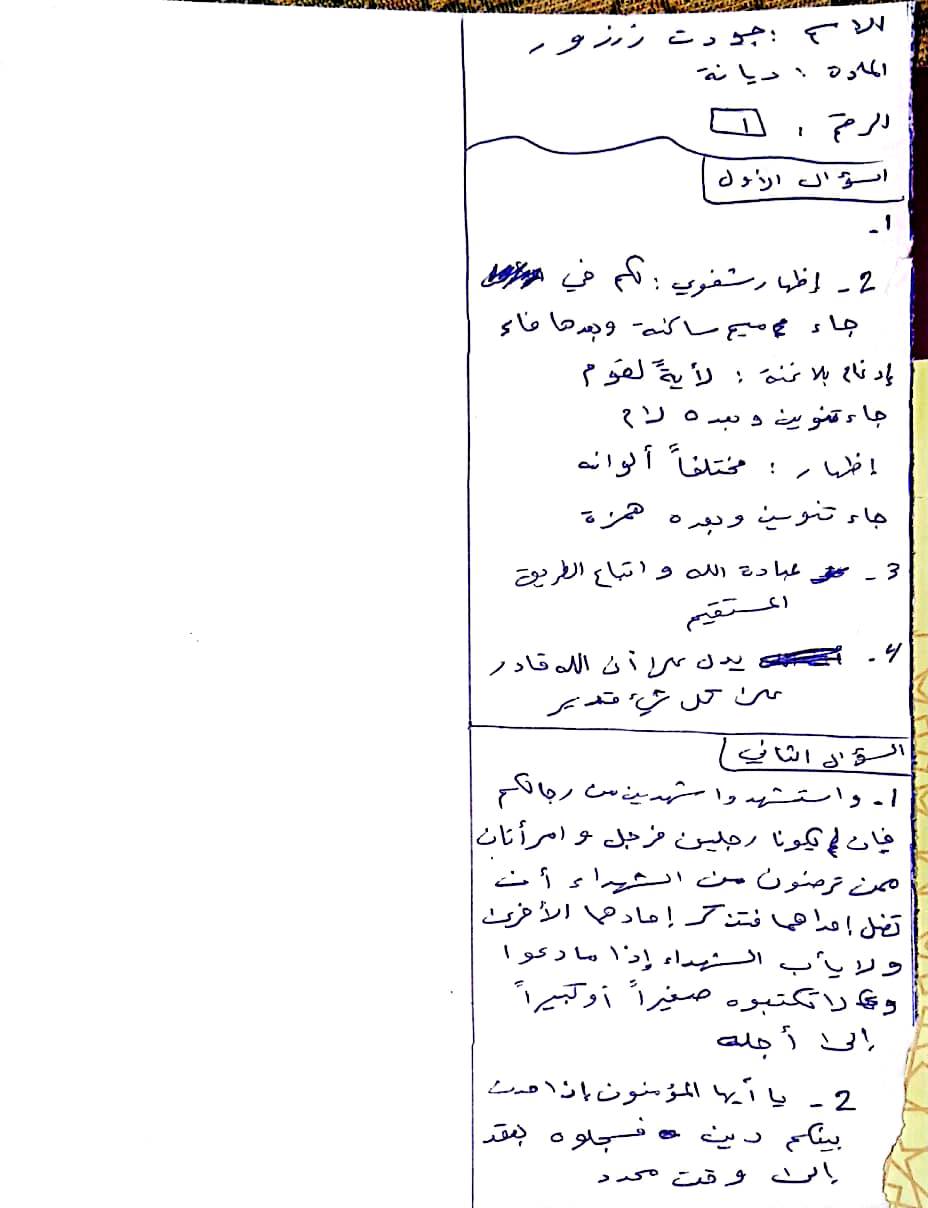 الاسم : جودت زرزور
المادة : ديانة
الرقم : 1
السؤال الأول
1-
2- إظهار شفوي : لكم في
جاء ميم ساكنة وبعدها فاء
إدغام بلا غنة : لأيةً لقوم
جاء تنوين وبعده لام
إظهار : مختلفاً ألوانه
جاء تنوين وبعده همزة
3- عبادة الله و اتباع الطريق
المستقيم
4- يدل على أن الله قادر
على كل شيء قدير
السؤال الثاني
1- و استشهدوا شهيدين من رجالكم
فإن لم يكونا رجلين فرجل و امرأتان
ممن ترضون من الشهداء أن
تضل إحداهما فتذكر إحادهما الأخرى
ولا يأب الشهداء إذا ما دعوا
و لا تكتبوه صغيراً أو كبيراً
إلى أجله
2- يا أيها المؤمنون إذا حدث
بينكم دين فسجلوه بعقد
إلى وقت محدد